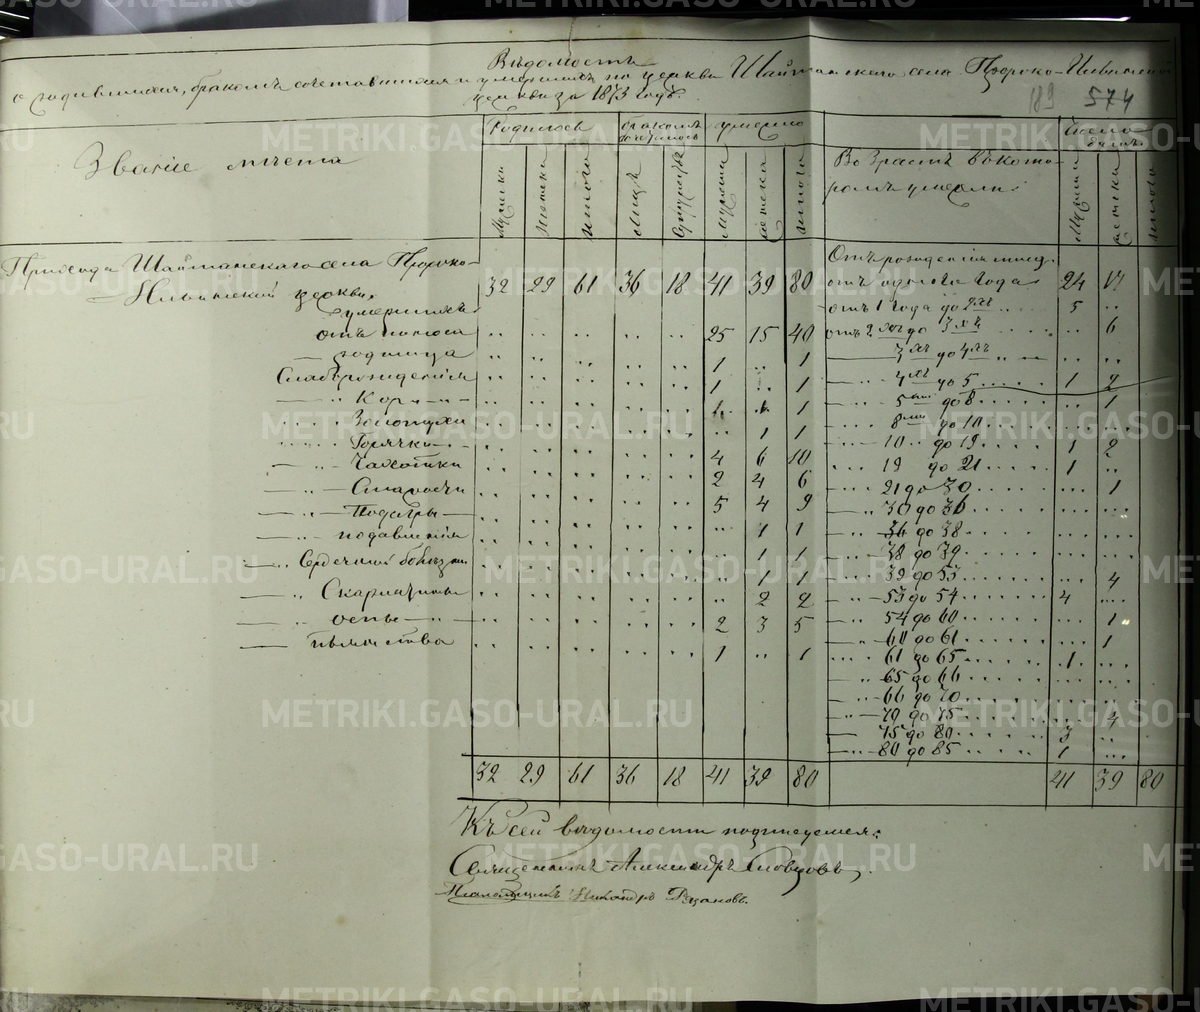 Вѣдомость
о родившихся, бракомъ сочетавшихся и умершихъ по церкви Шайтанскаго села Пророко-Ильинской
церкви за 1873 годъ.
189 574
Званіе мѣста
Родилось
бракомъ сочеталось
умерло
Возрастъ въ кото-
ромъ умерли:
Число
мужеска
женска
итого
лицъ
супружествъ
мужеска
женска
итого
женска
итого
Прихода Шайтанскаго села Пророко-
Ильинской церкви 32 29 61 36 18 41 39 80
умершихъ
отъ поноса 25 15 40
— родимца 1 .. 1
Слаборожденія 1 .. 1
— Кори 1
Золотухи 1 1
Горячки 4 6 10
— Чахотки 2 4 6
— Старости 5 4 9
— Подагры .. 1 1
— подавленія 1 1
— Сердечной болѣзни 1 1
— Скарлатины .. 2 2
— оспы 2 3 5
— пьянства 1 .. 1
32 29 61 36 18 41 39 80
Отъ рожденія младен.
отъ одного года 24 17
отъ 1 года до 2хъ 5 ..
отъ 2хъ до 3хъ .. 6
3хъ до 4хъ .. ..
4хъ до 5 1 2
5ти до 8 .. 1
8ми до 10
10 до 19 1 2
19 до 21 1 ..
21 до 30 ... 1
30 до 36
36 до 38
38 до 39
39 до 53 ... 4
53 до 54 4 ...
54 до 60 ... 1
60 до 61 ... 1
61 до 65 1 ...
65 до 66
66 до 70
70 до 75 ... 4
75 до 80 3 ..
80 до 85 1 ...
41 39 80
Къ сей вѣдомости подписуемся:
Священникъ Александръ Словцовъ.
Псаломщикъ Никандръ Рязановъ.
METRIKI.GASO-URAL.RU